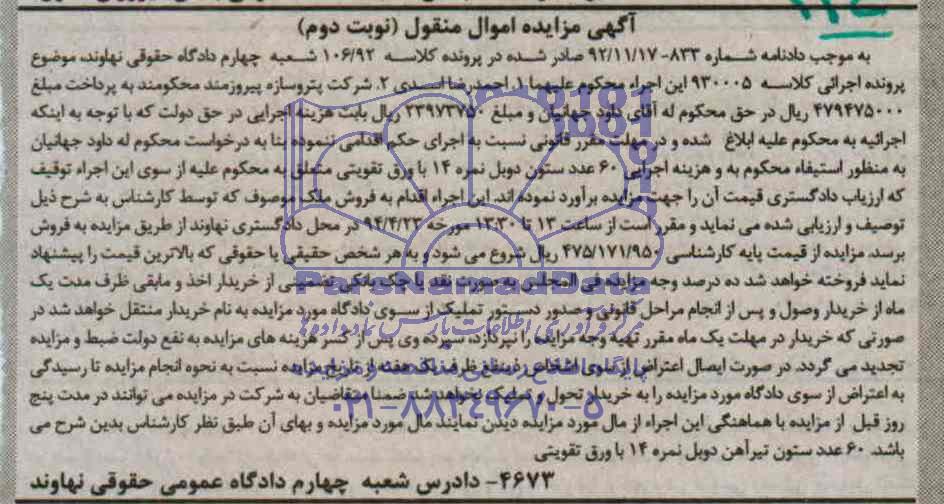 آگهی مزایده اموال منقول (نوبت دوم)
به موجب دادنامه شماره ۸۳۳-۹۲/۱۱/۱۷ صادر شده در پرونده کلاسه ۱۰۶/۹۲ شعبه چهارم دادگاه حقوقی نهاوند، موضوع
پرونده اجرائی کلاسه ۹۳۰۰۰۵ این اجراء محکوم علیهما ۱. احمدرضا اسدی ۲. شرکت پتروسازه پیروزمند محکومند به پرداخت مبلغ
۴۷۹۴۷۵۰۰۰ ریال در حق محکوم له آقای داود جهانیان و مبلغ ۲۳۹۷۳۷۵۰ ریال بابت هزینه اجرایی در حق دولت که با توجه به اینکه
اجرائیه به محکوم علیه ابلاغ شده و در مهلت مقرر قانونی نسبت به اجرای حکم اقدامی ننموده بنا به درخواست محکوم له داود جهانیان
به منظور استیفاء محکوم به و هزینه اجرایی ۶۰ عدد ستون دوبل نمره ۱۴ با ورق تقویتی متعلق به محکوم علیه از سوی این اجراء توقیف
که ارزیاب دادگستری قیمت آن را جهت مزایده برآورد نموده اند. این اجراء اقدام به فروش ملک موصوف که توسط کارشناس به شرح ذیل
توصیف و ارزیابی شده می نماید و مقرر است از ساعت ۱۳ تا ۱۳:۳۰ مورخه ۹۴/۴/۲۳ در محل دادگستری نهاوند از طریق مزایده به فروش
برسد. مزایده از قیمت پایه کارشناسی ۴۷۵/۱۷۱/۹۵۰ ریال شروع می شود و به هر شخص حقیقی یا حقوقی که بالاترین قیمت را پیشنهاد
نماید فروخته خواهد شد ده درصد وجه مزایده فی المجلس به صورت نقد یا چک بانکی تضمینی از خریدار اخذ و مابقی ظرف مدت یک
ماه از خریدار وصول و پس از انجام مراحل قانونی و صدور دستور تملیک از سوی دادگاه مورد مزایده به نام خریدار منتقل خواهد شد در
صورتی که خریدار در مهلت یک ماه مقرر تهیه وجه مزایده را نپردازد، سپرده وی پس از کسر هزینه های مزایده به نفع دولت ضبط و مزایده
تجدید می گردد. در صورت ایصال اعتراض از سوی اشخاص ذینفع ظرف یک هفته از تاریخ مزایده نسبت به نحوه انجام مزایده تا رسیدگی
به اعتراض از سوی دادگاه مورد مزایده را به خریدار تحویل و تملیک نخواهد شد ضمنا متقاضیان به شرکت در مزایده می توانند در مدت پنج
روز قبل از مزایده با هماهنگی این اجراء از مال مورد مزایده دیدن نمایند مال مورد مزایده و بهای آن طبق نظر کارشناس بدین شرح می
باشد. ۶۰ عدد ستون تیرآهن دوبل نمره ۱۴ با ورق تقویتی
۴۶۷۳- دادرس شعبه چهارم دادگاه عمومی حقوقی نهاوند
ParsNamadData
مرکز فرآوری اطلاعات پارس نماد داده ها
۰۲۱-۸۸۳۴۹۶۷۰-۵